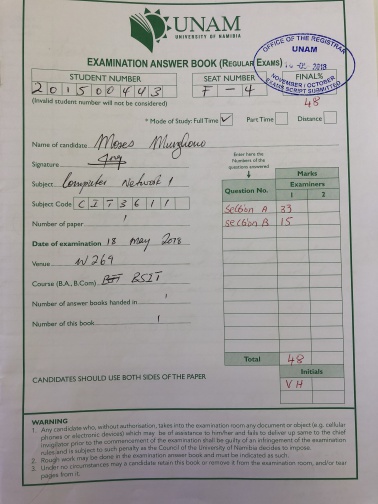 UNAM
UNIVERSITY OF NAMIBIA
EXAMINATION ANSWER BOOK (REGULAR EXAMS)
OFFICE OF THE REGISTRAR
UNAM
2018
NOVEMBER / OCTOBER
EXAMS SCRIPT SUBMITTED
STUDENT NUMBER
SEAT NUMBER
FINAL%
201500443
F-4
48
(Invalid student number will not be considered)
* Mode of Study: Full Time ✓ Part Time Distance
Name of candidate Moses
Signature
Subject Computer Network 1
Subject Code CIT3611
Number of paper 1
Date of examination 18 may 2018
Venue W269
Course (B.A., B.Com) BSIT
Number of answer books handed in 1
Number of this book 1
Enter here the
Numbers of the
questions answered
Marks
Question No. Examiners
1 2
Section A 33
Section B 15
Total 48
Initials
VH
CANDIDATES SHOULD USE BOTH SIDES OF THE PAPER
WARNING
1. Any candidate who, without authorisation, takes into the examination room any document or object (e.g. cellular
phones or electronic devices) which may be of assistance to him/her and fails to deliver up same to the chief
invigilator prior to the commencement of the examination shall be guilty of an infringement of the examination
rules and is subject to such penalty as the Council of the University of Namibia decides to impose.
2. Rough work may be done in the examination answer book and must be indicated as such.
3. Under no circumstances may a candidate retain this book or remove it from the examination room, and/or tear
pages from it.